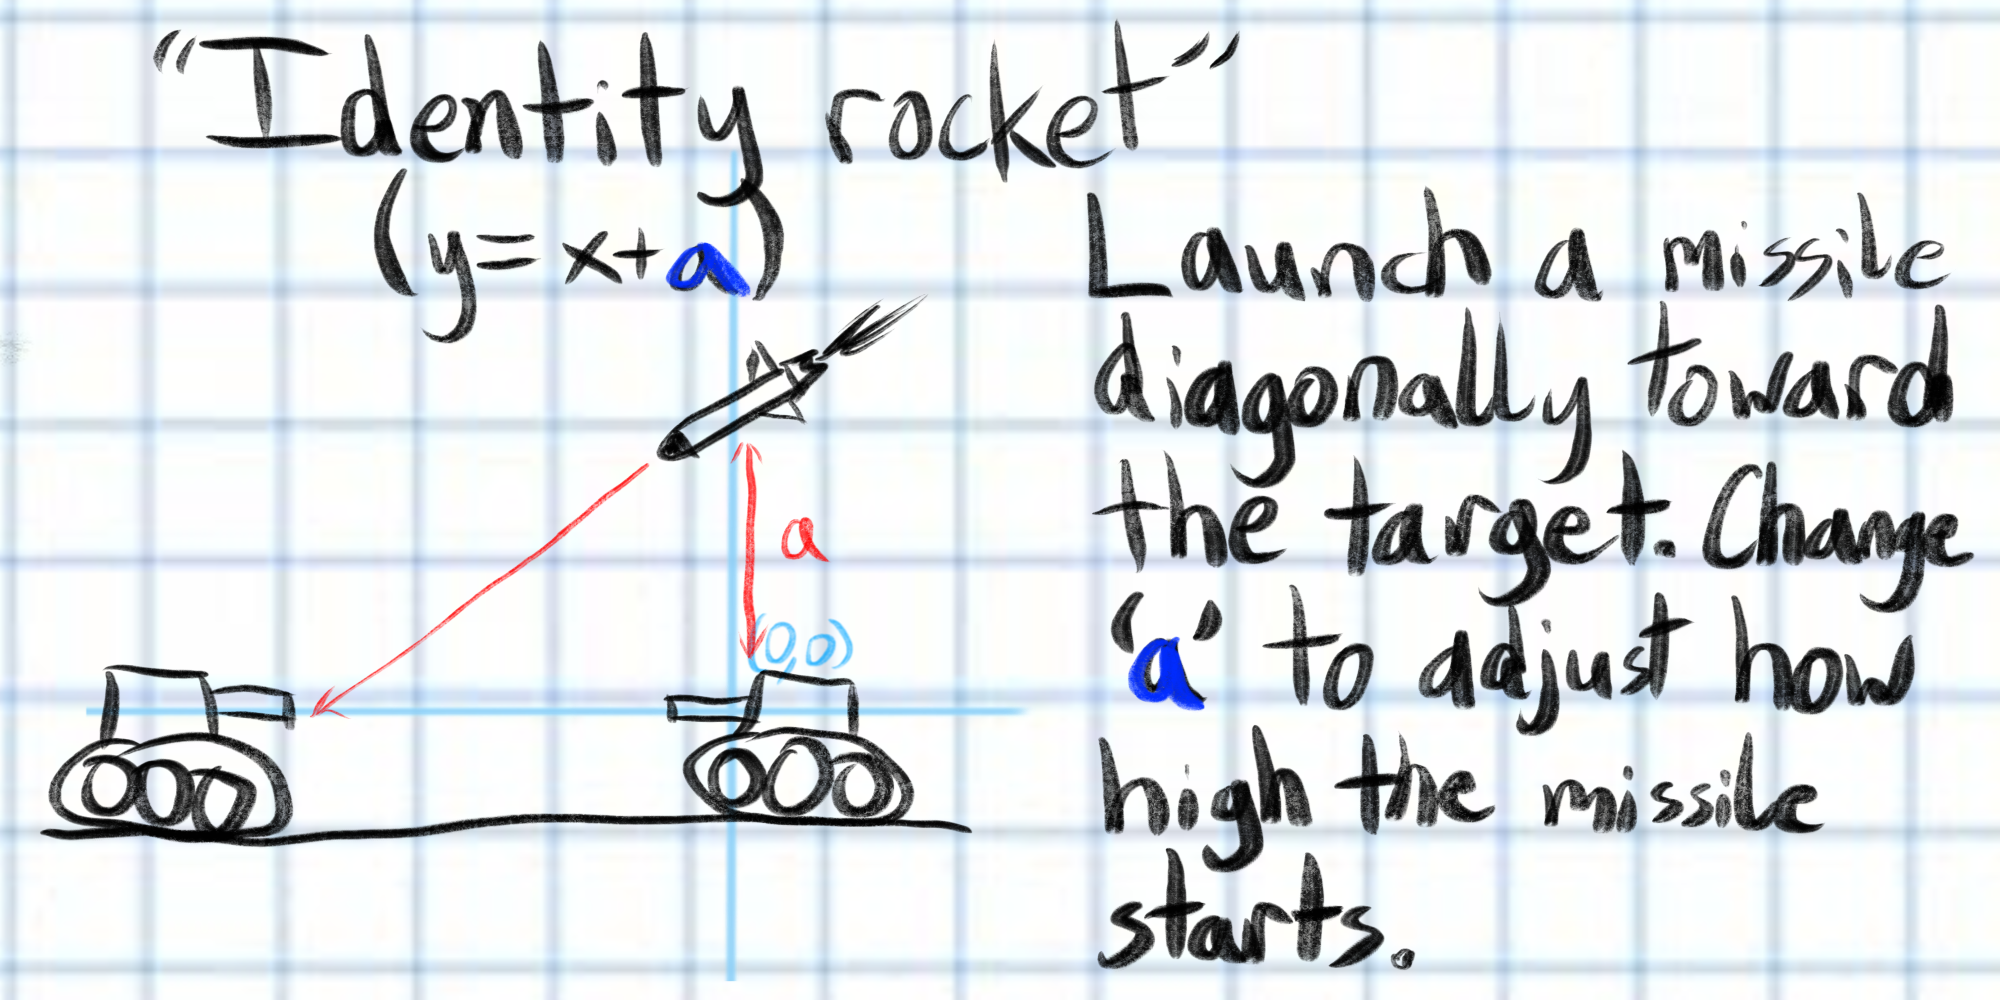 "Identity rocket"
(y=x+a)
Launch a missile
diagonally toward
the target. Change
'a' to adjust how
high the missile
starts.
a
(0,0)